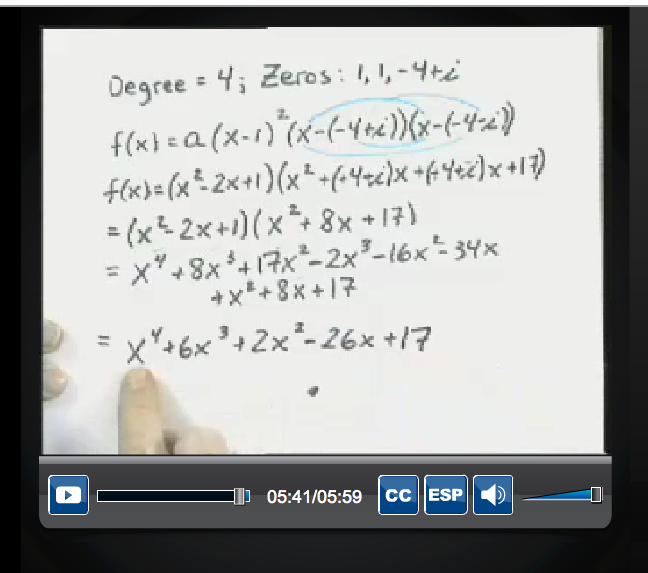 Degree = 4; Zeros: 1, 1, -4+i
f(x) = a(x-1)²(x-(-4+i))(x-(-4-i))
f(x)=(x²-2x+1)(x²-(-4-i)x-(-4+i)x+17)
=(x²-2x+1)(x²+8x+17)
= x⁴+8x³+17x²-2x³-16x²-34x
+x²+8x+17
= x⁴+6x³+2x²-26x+17
05:41/05:59
CC
ESP